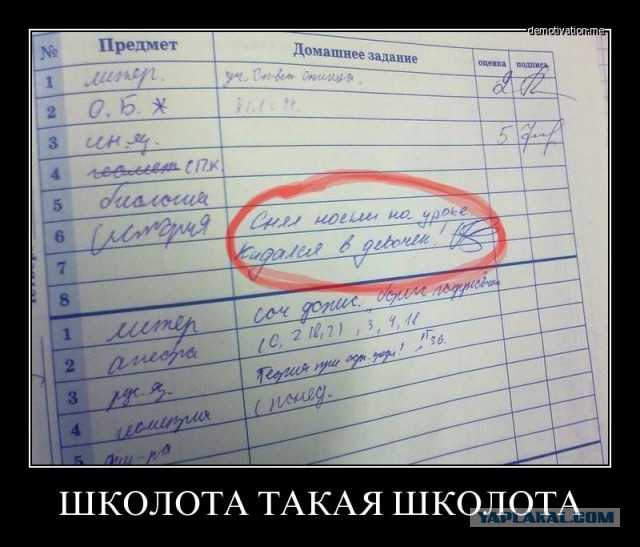 demotivation.me
№ Предмет Домашнее задание оценка подпись
1 литер. 2
2 О.Б.Ж
3 ин.яз. 5
4 геомет СПК.
5 биология
6 история Снял носки на уроке.
7 Кидался в девочек!
8
1 литер соч
2 алгебра 3, 4,
3 рус.яз. Теория при
4 геометрия с понед.
5 физ-ра
ШКОЛОТА ТАКАЯ ШКОЛОТА
YAPLAKAL.COM